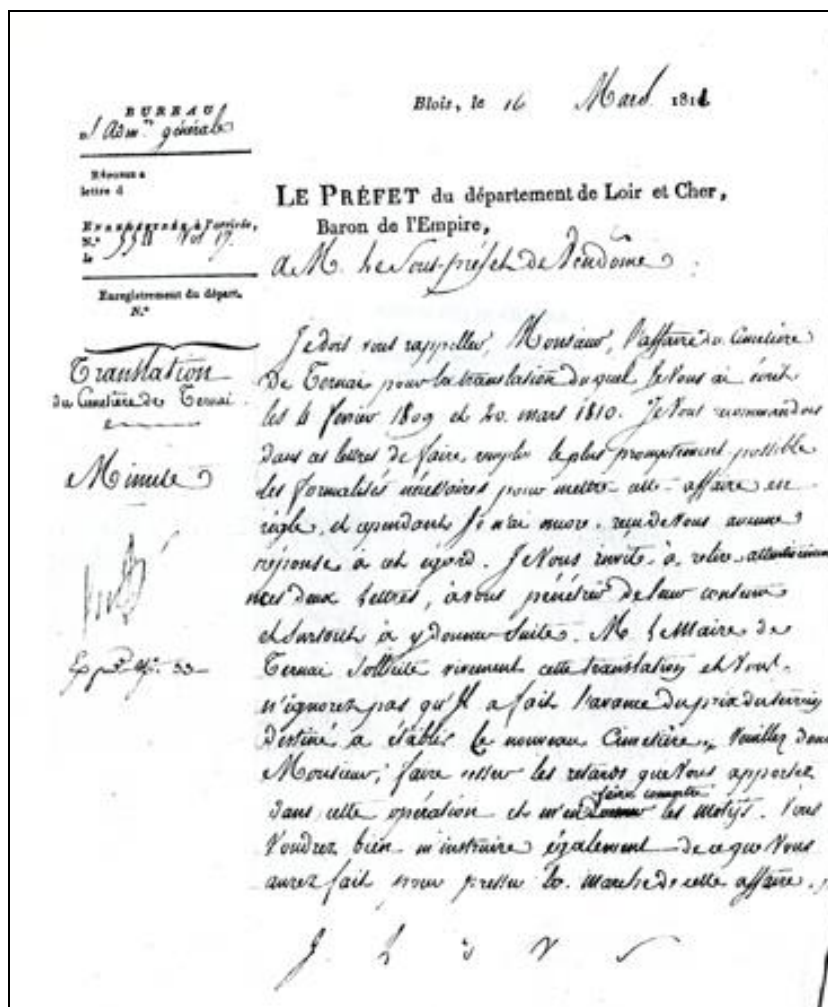 BUREAU
d'Adm.on générale
Blois, le 16 Mars 1811
Réponse a
lettre d
Enregistrée à l'arrivée,
N.°
le
Enregistrement du départ.
N.°
LE PRÉFET du département de Loir et Cher,
Baron de l'Empire,
A M. Le Sous-préfet de Vendôme
Translation
du Cimetière de Ternai.
Minute
Je dois vous rappeller, Monsieur, l'affaire du Cimetière
De Ternai pour la translation duquel Je Vous ai écrit
les 4 fevrier 1809 et 20. mars 1810. Je Vous recommandois
dans ces lettres de faire remplir le plus promptement possible
les formalités nécessaires pour mettre cette affaire en
règle, et cependant Je n'ai encore reçu de Vous aucune
réponse à cet égard. Je Vous invite à relire attentivement
mes deux Lettres, à vous pénétrer de leur contenu
et surtout à y donner Suite. M. le Maire de
Ternai Sollicite vivement cette translation et Vous
n'ignorez pas qu'Il a fait l'avance du prix du terrein
Destiné à établir le nouveau Cimetière. Veuillez donc
Monsieur, faire cesser les retards que Vous apportez
dans cette opération et m'en faire connaître les motifs. Vous
Voudrez bien m'instruire également de ce que Vous
aurez fait pour presser la marche de cette affaire.